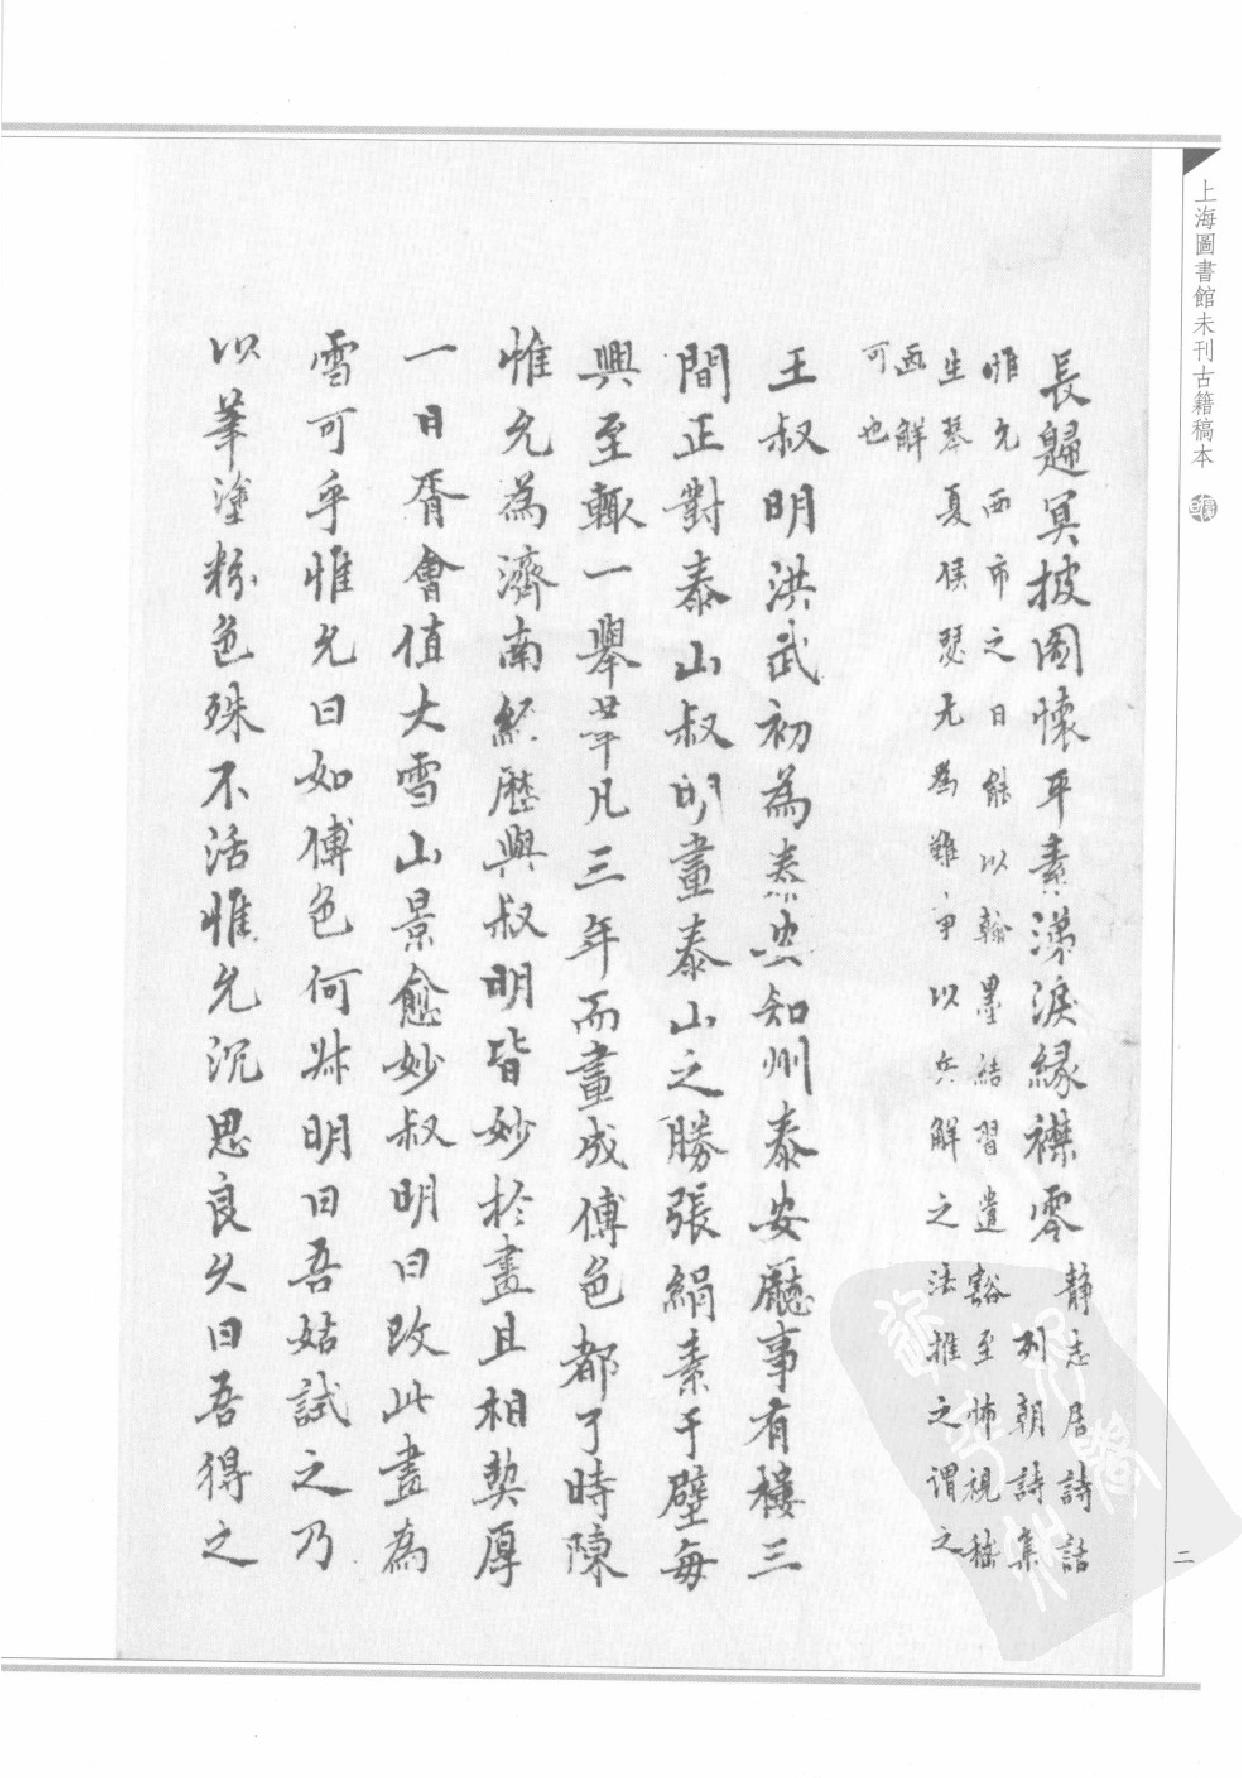 上海圖書館未刊古籍稿本
長歸冥披圖懷平素涕淚緣襟零 靜志居詩話
列朝詩集
惟允西市之日能以翰墨結習遣豁至怖視嵇
生琴夏侯瑟尤為難事以兵解之法推之謂之
画解
可也
王叔明洪武初為泰安知州泰安廳事有樓三
間正對泰山叔明畫泰山之勝張絹素于壁每
興至輙一舉筆凡三年而畫成傅色都了時陳
惟允為濟南經歷與叔明皆妙於畫且相契厚
一日胥會值大雪山景愈妙叔明曰改此畫為
雪可乎惟允曰如傅色何叔明曰吾姑試之乃
以筆塗粉色殊不活惟允沉思良久曰吾得之
二